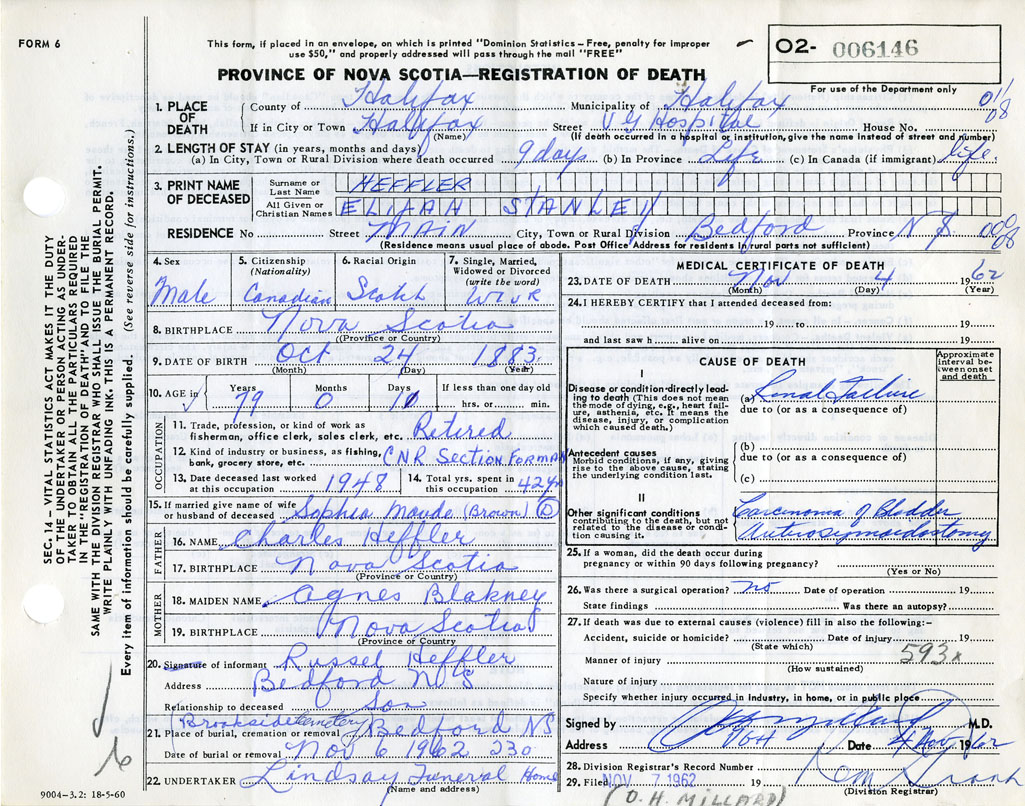 FORM 6
This form, if placed in an envelope, on which is printed "Dominion Statistics – Free, penalty for improper
use $50," and properly addressed will pass through the mail "FREE"
02- 006146
PROVINCE OF NOVA SCOTIA—REGISTRATION OF DEATH
For use of the Department only
1. PLACE OF DEATH
County of Halifax Municipality of Halifax
01/08
If in City or Town Halifax (Name) Street V G Hospital House No.
(If death occurred in a hospital or institution, give the name instead of street and number)
2. LENGTH OF STAY (in years, months and days)
(a) In City, Town or Rural Division where death occurred 9 days (b) In Province Life (c) In Canada (if immigrant) life
3. PRINT NAME OF DECEASED
Surname or Last Name HEFFLER
All Given or Christian Names ELIJAH STANLEY
RESIDENCE No Street MAIN City, Town or Rural Division Bedford Province N S
(Residence means usual place of abode. Post Office Address for residents in rural parts not sufficient)
4. Sex
Male
5. Citizenship (Nationality)
Canadian
6. Racial Origin
Scotch
7. Single, Married, Widowed or Divorced (write the word)
8. BIRTHPLACE Nova Scotia
(Province or Country)
9. DATE OF BIRTH Oct 24 1883
(Month) (Day) (Year)
10. AGE in Years 79 Months 0 Days If less than one day old hrs. or min.
OCCUPATION
11. Trade, profession, or kind of work as fisherman, office clerk, sales clerk, etc. Retired
12. Kind of industry or business, as fishing, bank, grocery store, etc. CNR Section Forman
13. Date deceased last worked at this occupation 1948
14. Total yrs. spent in this occupation 42 yrs
15. If married give name of wife or husband of deceased Sophia Maude (Brown) D
FATHER
16. NAME Charles Heffler
17. BIRTHPLACE Nova Scotia
(Province or Country)
MOTHER
18. MAIDEN NAME Agnes Blakney
19. BIRTHPLACE Nova Scotia
(Province or Country)
20. Signature of informant Russel Heffler
Address Bedford N S
Relationship to deceased Son
Brookside Cemetery
21. Place of burial, cremation or removal Bedford NS
Date of burial or removal Nov 6 1962 230
22. UNDERTAKER Lindsay Funeral Home
(Name and address)
9004-3.2: 18-5-60
MEDICAL CERTIFICATE OF DEATH
23. DATE OF DEATH Nov 4 1962
(Month) (Day) (Year)
24. I HEREBY CERTIFY that I attended deceased from:
19 to 19
and last saw h alive on 19
CAUSE OF DEATH
Approximate interval between onset and death
I
Disease or condition directly leading to death (This does not mean the mode of dying, e.g., heart failure, asthenia, etc. It means the disease, injury, or complication which caused death.)
(a) Renal Failure
due to (or as a consequence of)
Antecedent causes
Morbid conditions, if any, giving rise to the above cause, stating the underlying condition last.
(b)
due to (or as a consequence of)
(c)
II
Other significant conditions contributing to the death, but not related to the disease or condition causing it.
Carcinoma of Bladder
25. If a woman, did the death occur during
pregnancy or within 90 days following pregnancy?
(Yes or No)
26. Was there a surgical operation? no Date of operation 19
State findings Was there an autopsy?
27. If death was due to external causes (violence) fill in also the following:-
Accident, suicide or homicide? Date of injury 19
(State which)
593x
Manner of injury
(How sustained)
Nature of injury
Specify whether injury occurred in industry, in home, or in public place
Signed by M.D.
Address VGH Date 4 Nov 1962
28. Division Registrar's Record Number
29. Filed NOV 7 1962 19
(Division Registrar)
(O. H. MILLARD)
SEC. 14 – VITAL STATISTICS ACT MAKES IT THE DUTY
OF THE UNDERTAKER OR PERSON ACTING AS UNDER-
TAKER TO OBTAIN ALL THE PARTICULARS REQUIRED
IN THE "REGISTRATION OF DEATH" AND TO FILE THE
SAME WITH THE DIVISION REGISTRAR WHO SHALL ISSUE THE BURIAL PERMIT.
WRITE PLAINLY WITH UNFADING INK. THIS IS A PERMANENT RECORD.
Every item of information should be carefully supplied. (See reverse side for instructions.)